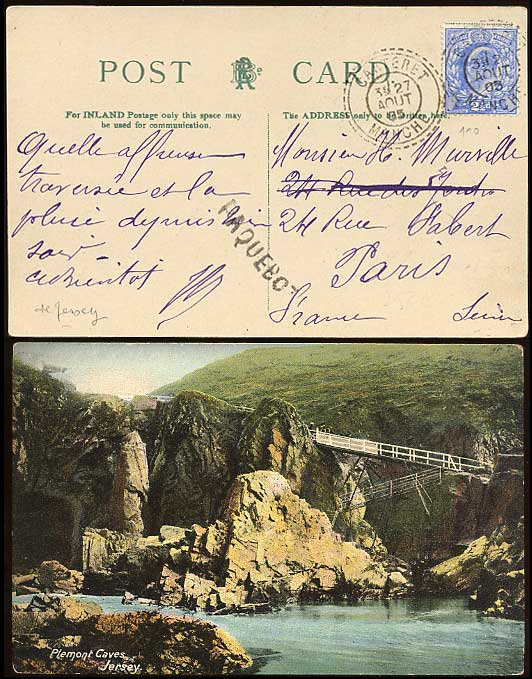 POST CARD
For INLAND Postage only this space may
be used for communication.
The ADDRESS only to be written here.
CARTERET
3E 27
AOUT
05
MANCHE
3E 27
AOUT
05
MANCHE
Quelle affreuse
traversée et la
pluie depuis hier
soir
à bientôt
de Jersey
PAQUEBOT
Monsieur H. Murville
24 Rue
24 Rue Sabert
Paris
France Seine
Plemont Caves,
Jersey.